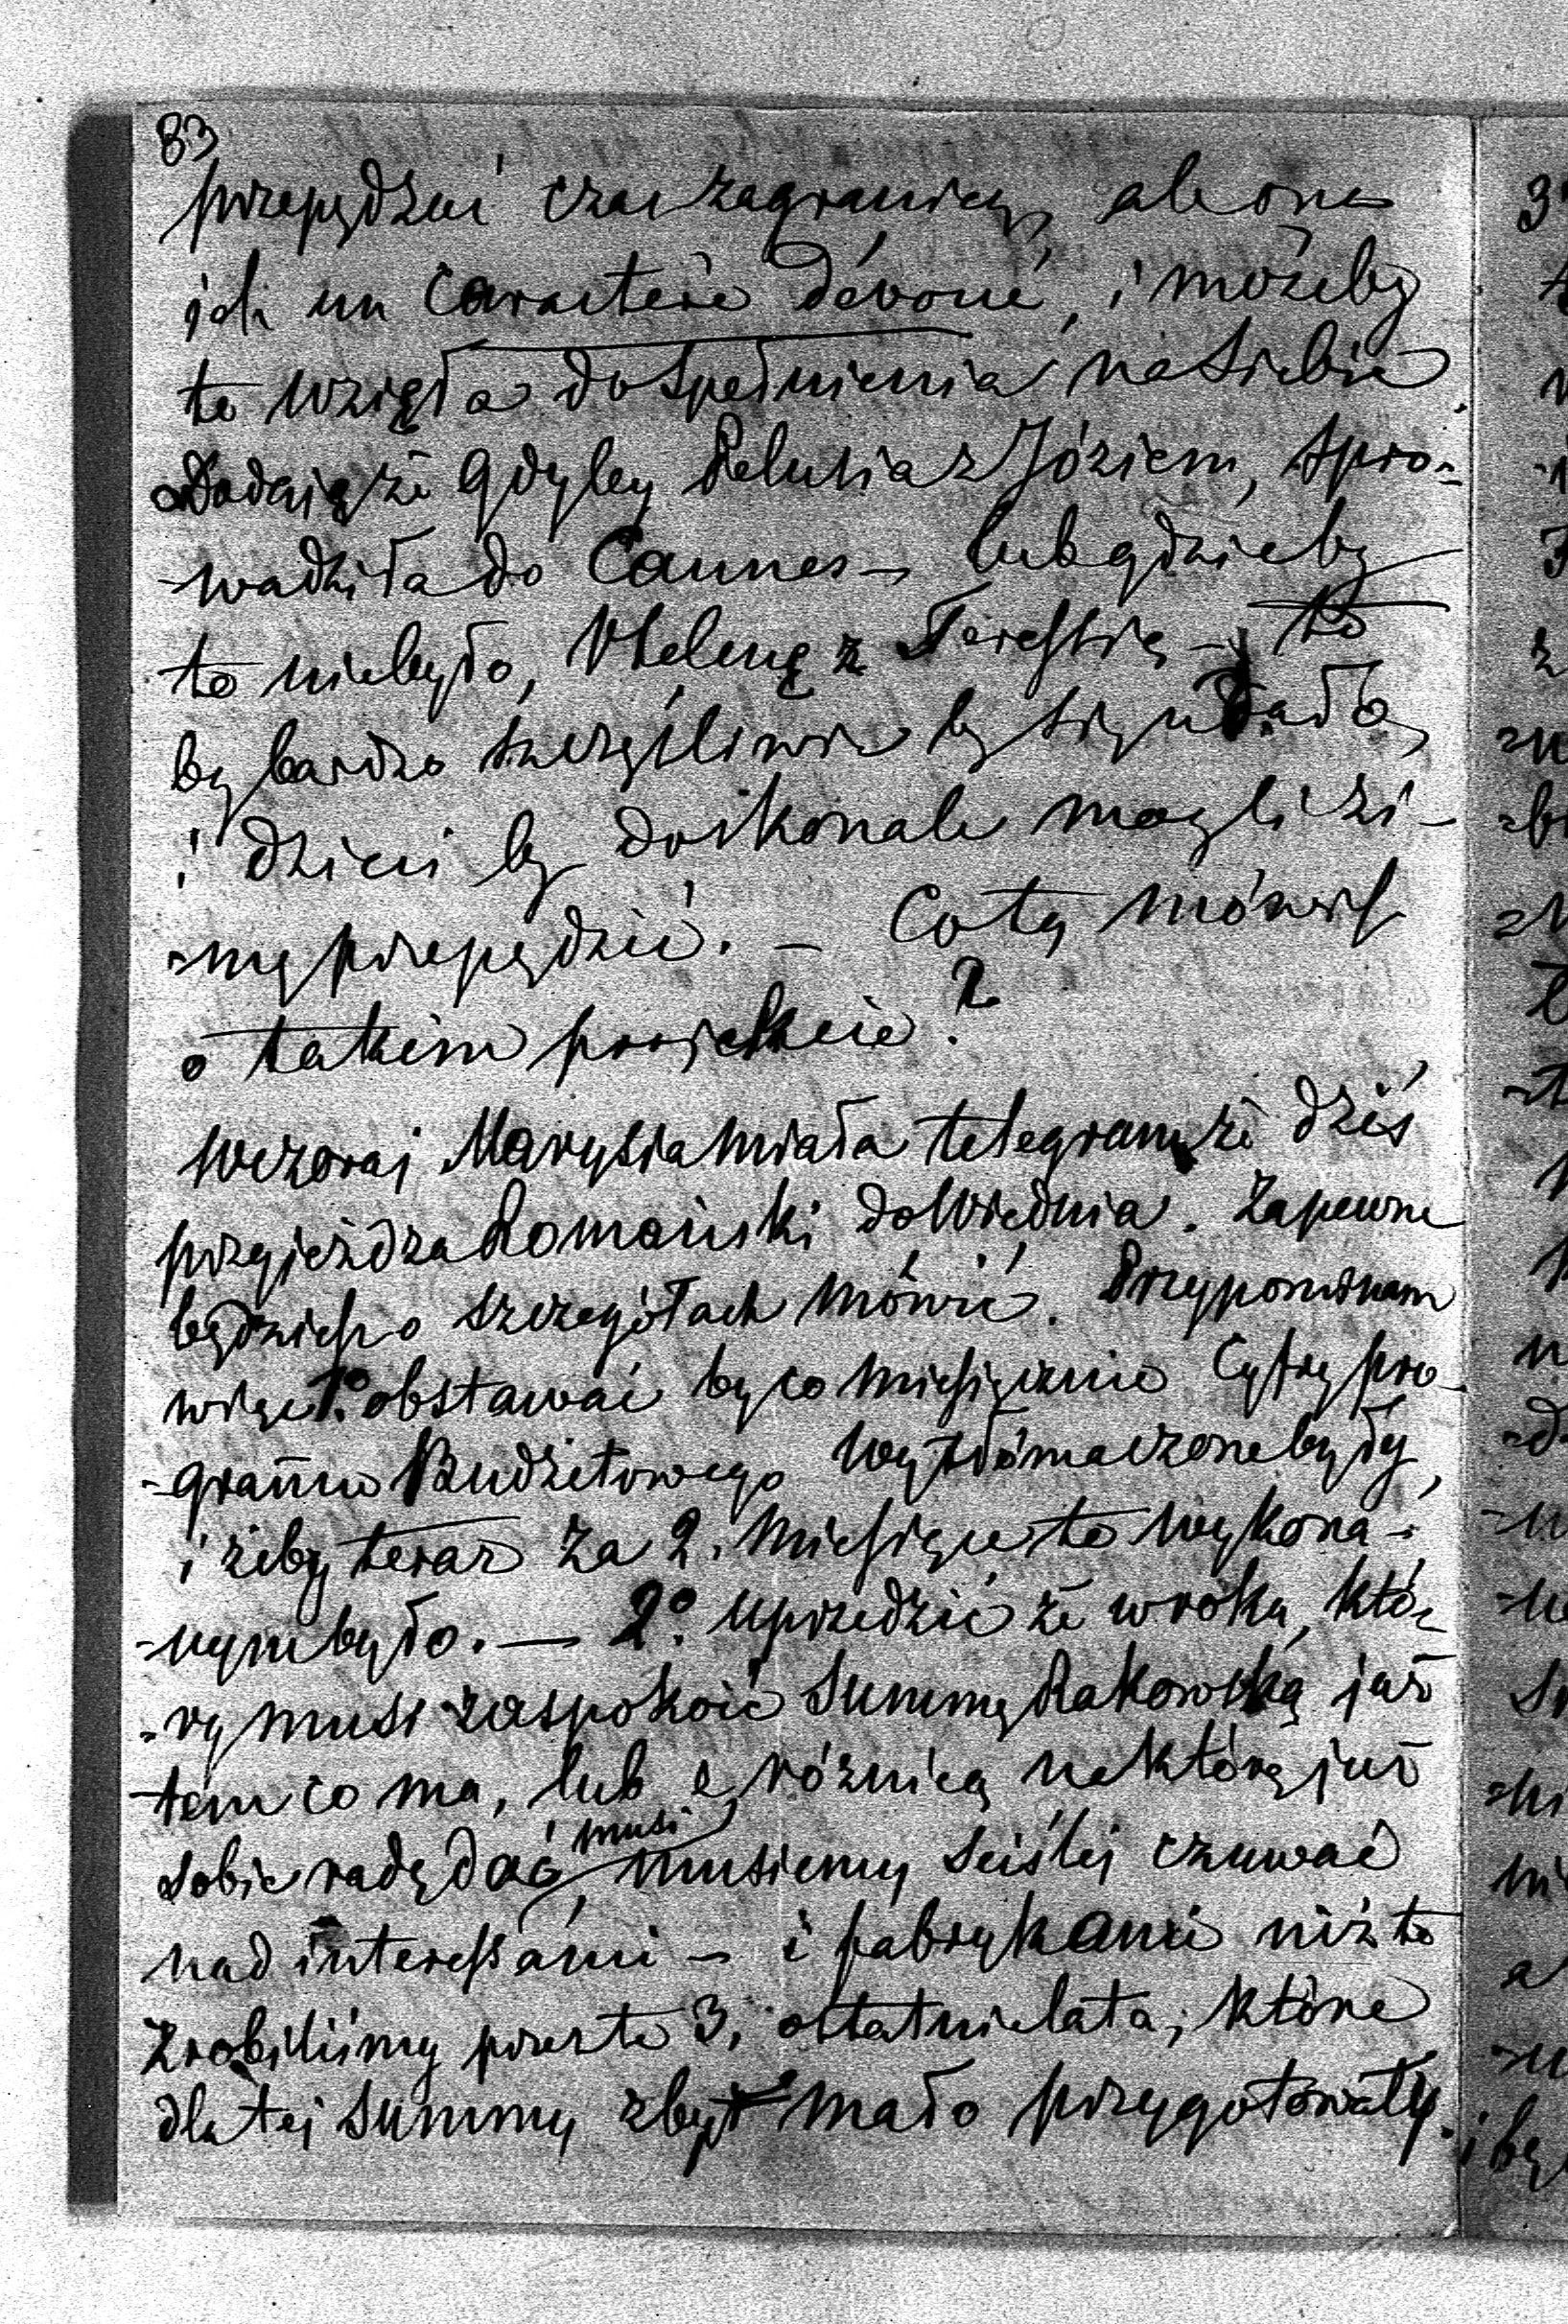 83
przepędzać czas zagranicą, ale ona
jest un caractère dévoué, i możeby
to wzięła do spełnienia na siebie.
Dodają że gdyby Relusia z Józiem, spro-
-wadziła do Cannes — lub gdzieby
to niebyło, Helenę z Tereską — to
by bardzo szczęśliwie by się udało,
i dzieci by doskonale mogli zi-
-mę przepędzić. — Co ty mówisz
o takim projekcie?
Wczoraj Marysia miała telegram, że dziś
przyjeżdza Romański do Wiednia. Zapewne
będziesz o szczegółach mówić. Przypominam
więc 1º obstawać by co miesięcznie Cyfry pro-
-gramu Budżetowego wytłómaczone były,
i żeby teraz za 2. miesiące to wykona-
-nym było. — 2º. uprzedzić że w roku, któ-
-ry musi zaspokoić Summę Rakowską już
tem co ma, lub z różnicą na którą już
sobie radę dać musi, musiemy ściślej czuwać
nad interessami — i fabrykami niż to
zrobiliśmy przez te 3, ostatnie lata, które
dla tej summy zbyt mało przygotowały.